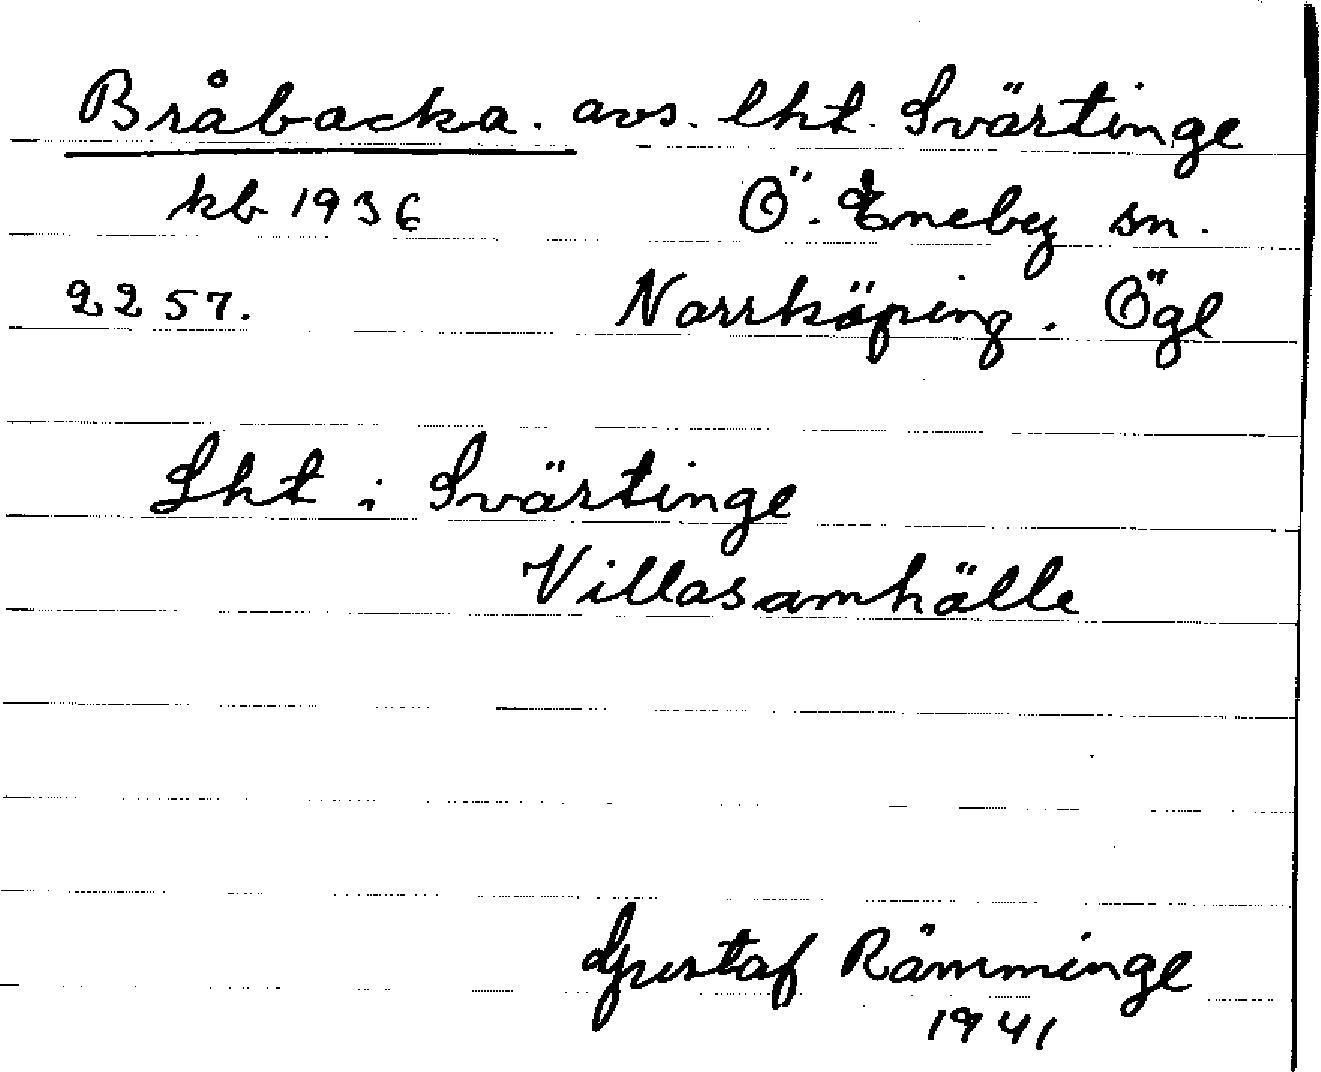 Bråbacka. avs. lht. Svärtinge
kb 1936 Ö. Eneby sn.
2257. Norrköping. Ögl
Lht i Svärtinge
Villasamhälle
Gustaf Rämminge
1941